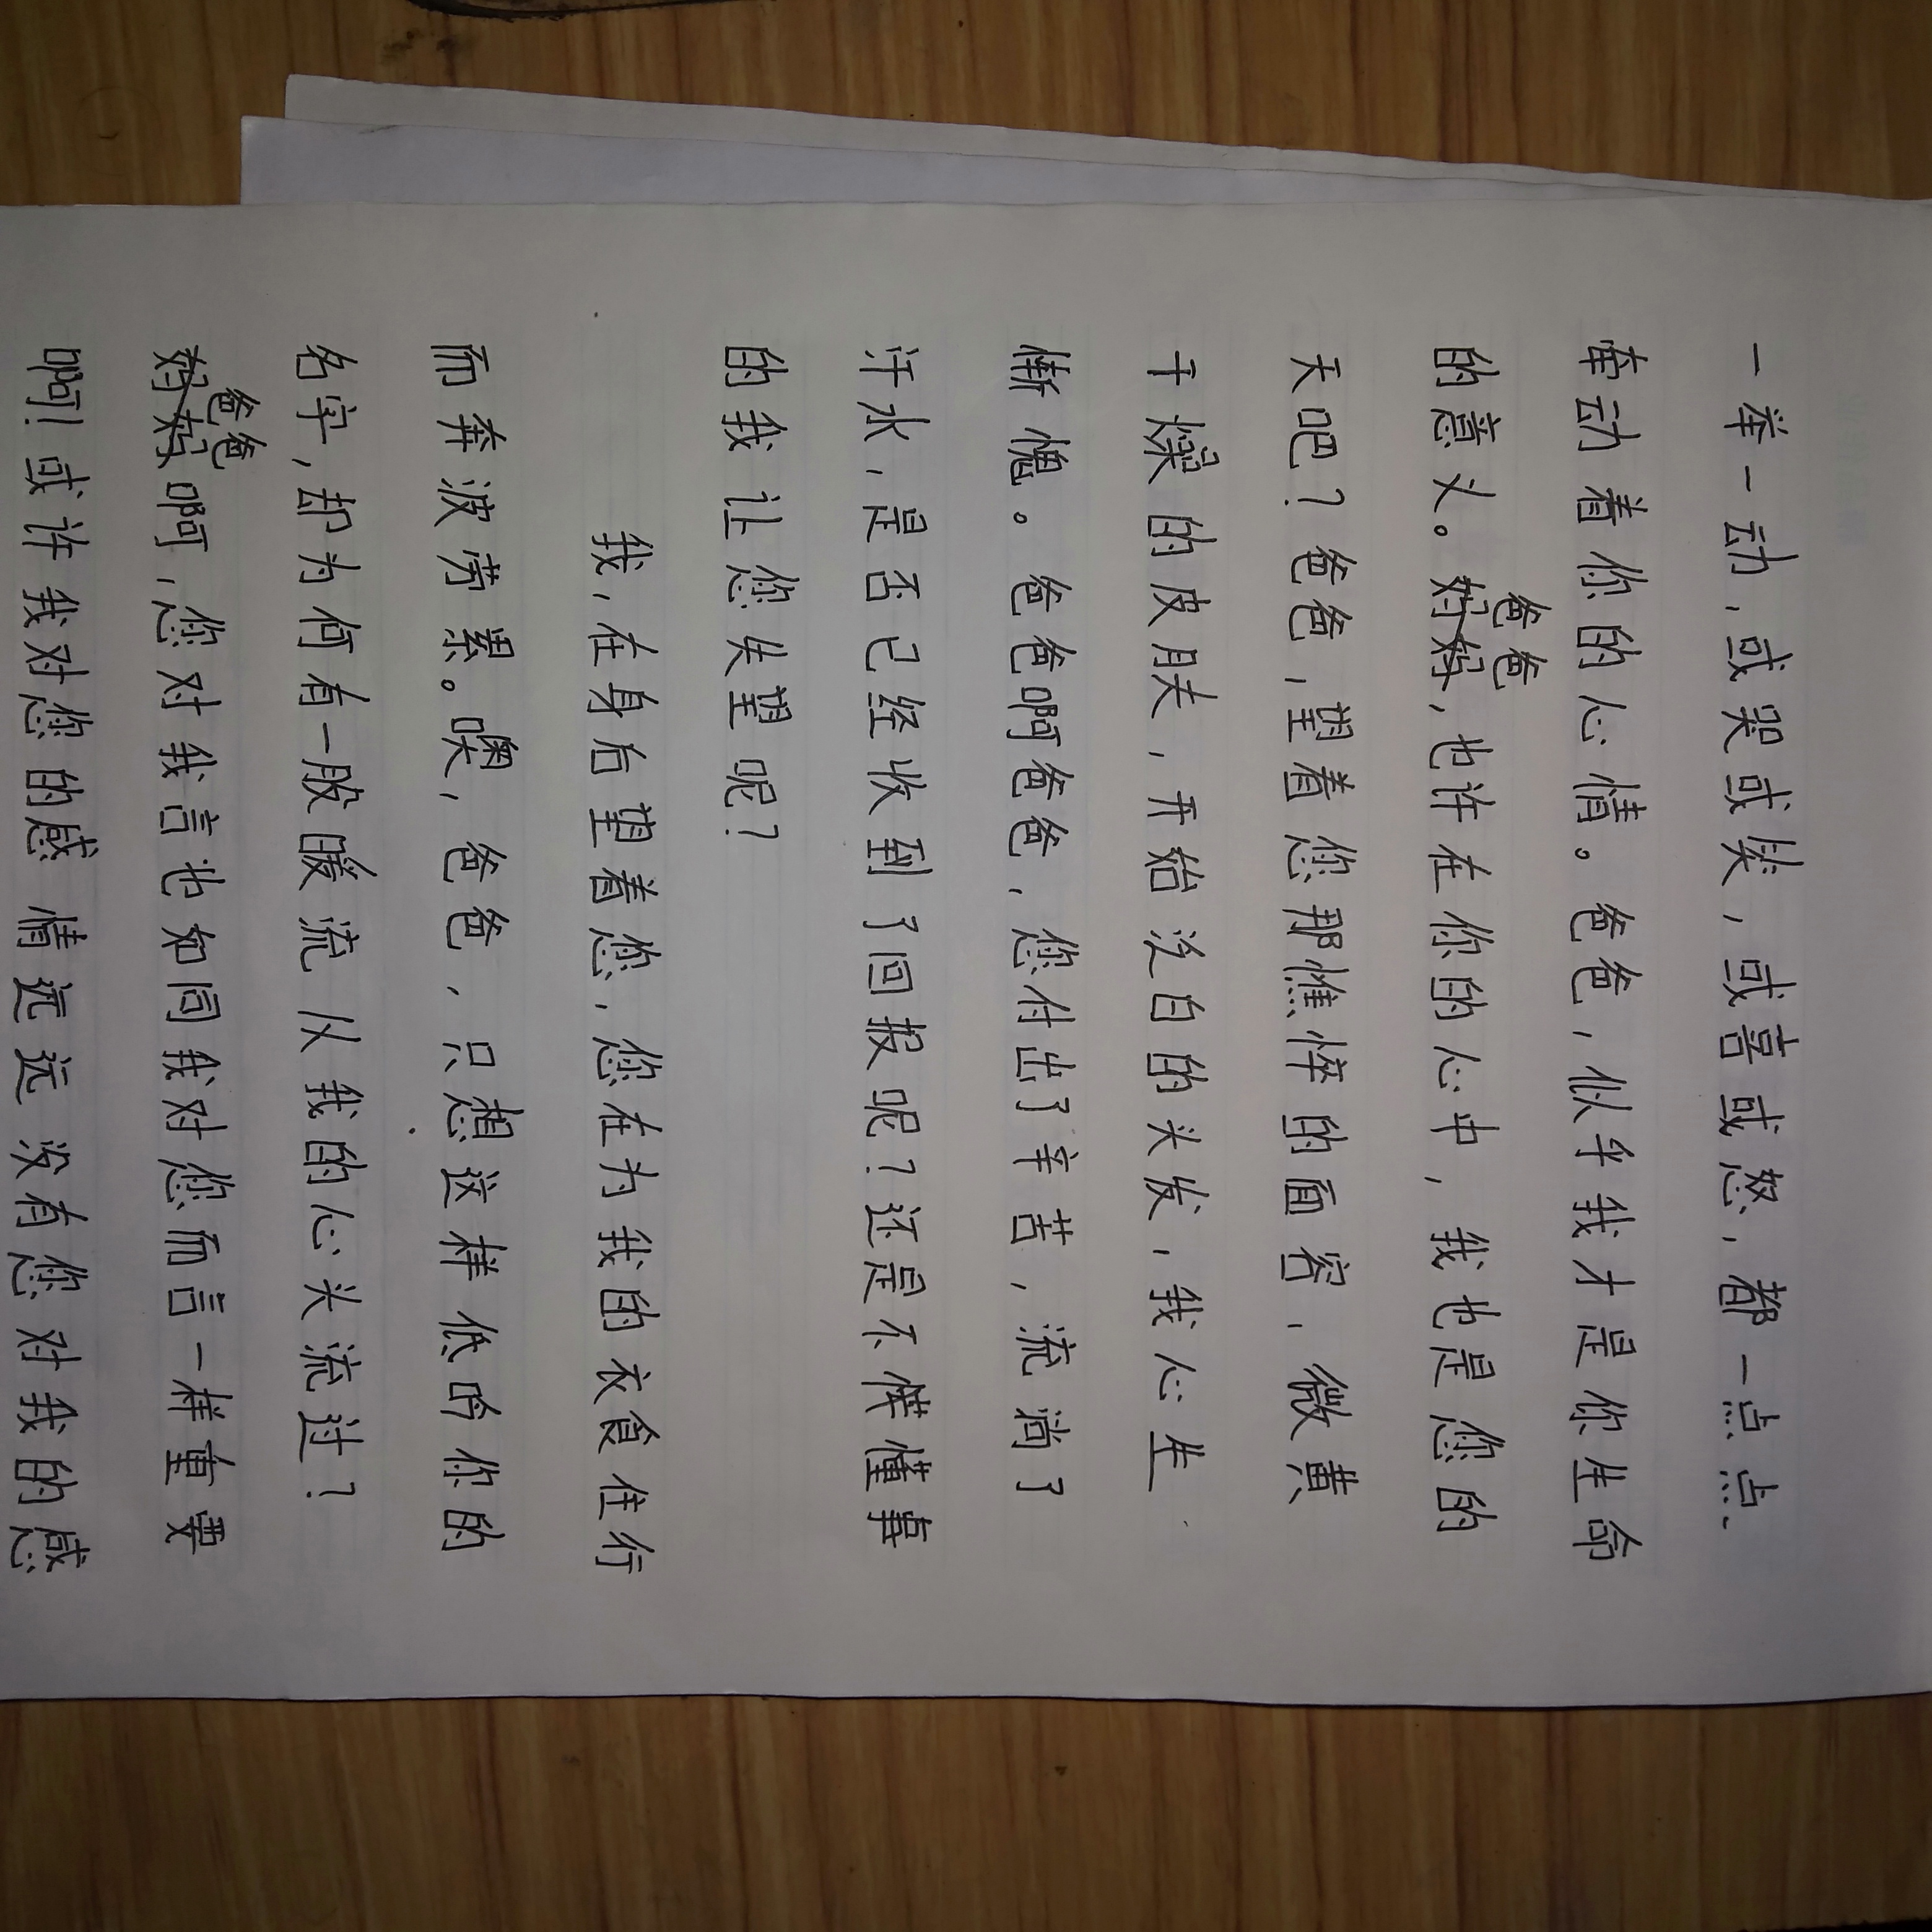 一举一动，或哭或笑，或喜或怒，都一点点
牵动着你的心情。爸爸，似乎我才是你生命
的意义。爸爸，也许在你的心中，我也是您的
天吧？爸爸，望着您那憔悴的面容，微黄
干燥的皮肤，开始泛白的头发，我心生
惭愧。爸爸啊爸爸，您付出了辛苦，流淌了
汗水，是否已经收到了回报呢？还是不懂事
的我让您失望呢？
我，在身后望着您，您在为我的衣食住行
而奔波劳累。噢，爸爸，只想这样低吟你的
名字，却为何有一股暖流从我的心头流过？
爸爸啊，您对我言也如同我对您而言一样重要
啊！或许我对您的感情远远没有您对我的感